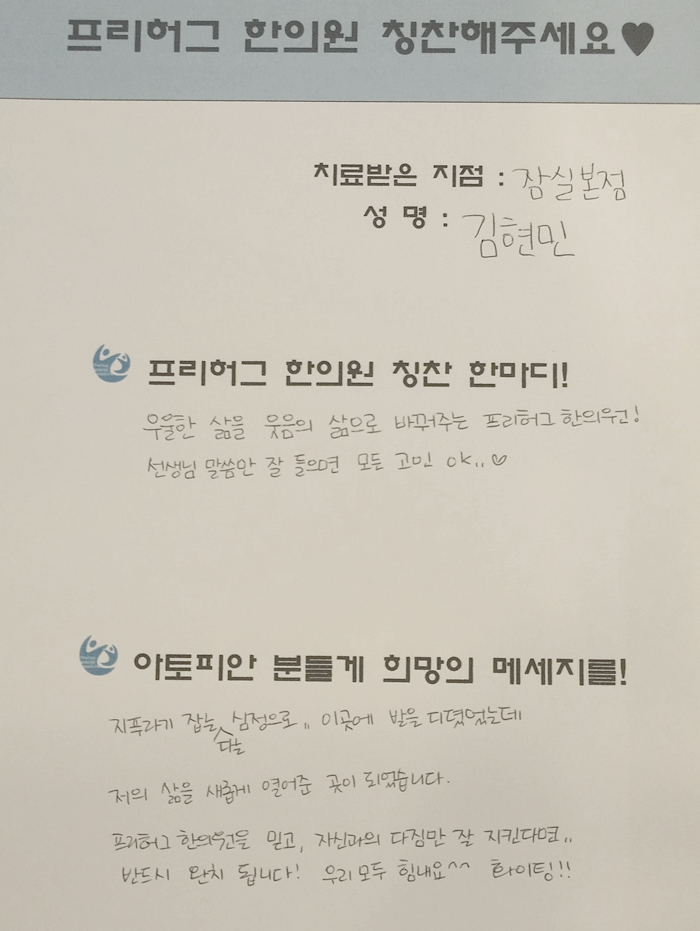 프리허그 한의원 칭찬해주세요♥
치료받은 지점 : 잠실본점
성 명 : 김현민
프리허그 한의원 칭찬 한마디!
우울한 삶을 웃음의 삶으로 바꿔주는 프리허그 한의원!
선생님 말씀만 잘 들으면 모든 고민 ok..♡
아토피안 분들게 희망의 메세지를!
지푸라기 잡는다는 심정으로.. 이곳에 발을 디뎠었는데
저의 삶을 새롭게 열어준 곳이 되었습니다.
프리허그 한의원을 믿고, 자신과의 다짐만 잘 지킨다면..
반드시 완치 됩니다! 우리 모두 힘내요^^ 화이팅!!